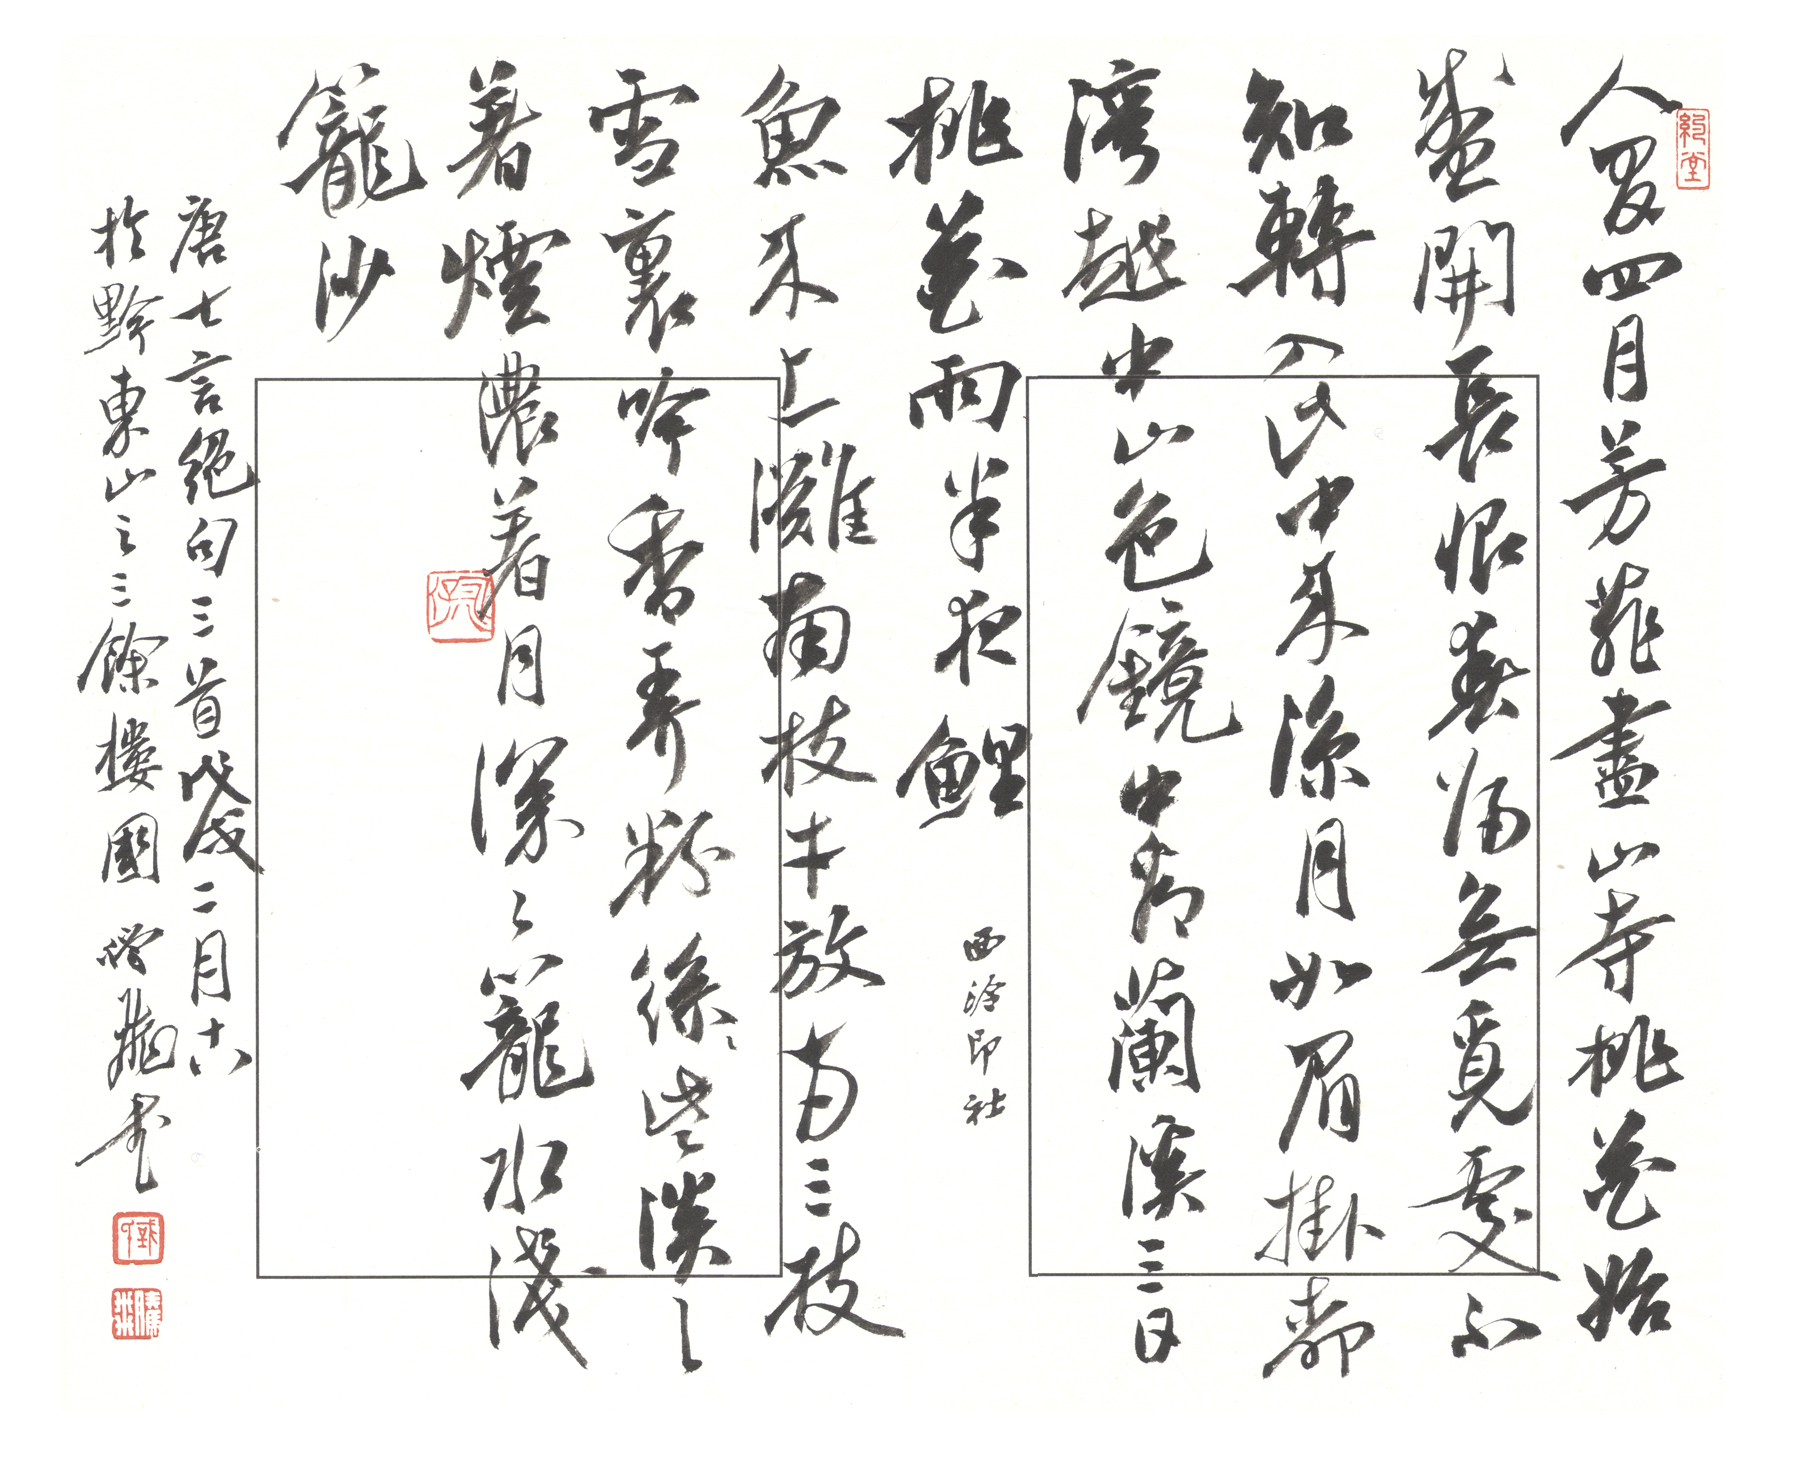 約堂
人間四月芳菲盡山寺桃花始
盛開長恨春歸無覓處不
知轉入此中來涼月如眉掛柳
灣越中山色鏡中看蘭溪三日
桃花雨半夜鯉
西泠印社
魚來上灘南枝才放兩三枝
雪裏吟香弄粉絲〻些淡〻
著煙濃著月深〻籠水淺
籠沙
唐七言絕句三首戊戌二月十六
於黔東山之三餘樓國 書